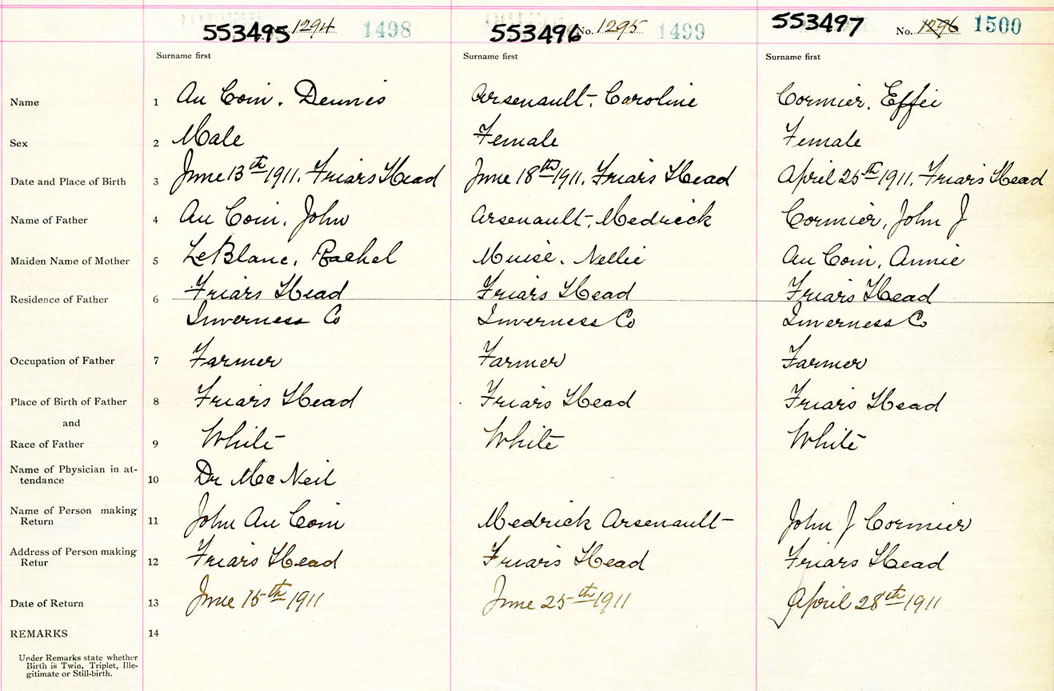 553495 1294 1498 553496 No. 1295 1499 553497 No. 1296 1500
Surname first Surname first Surname first
Name 1 Au Coin, Dennis Arsenault, Caroline Cormier, Effie
Sex 2 Male Female Female
Date and Place of Birth 3 June 13th 1911. Friars Head June 18th 1911. Friars Head April 25th 1911. Friars Head
Name of Father 4 Au Coin, John Arsenault, Medrick Cormier, John J
Maiden Name of Mother 5 LeBlanc, Rachel Muise, Nellie Au Coin, Annie
Residence of Father 6 Friars Head Friars Head Friars Head
Inverness Co Inverness Co Inverness Co
Occupation of Father 7 Farmer Farmer Farmer
Place of Birth of Father 8 Friars Head Friars Head Friars Head
and
Race of Father 9 White White White
Name of Physician in at-
tendance 10 Dr MacNeil
Name of Person making
Return 11 John Au Coin Medrick Arsenault John J Cormier
Address of Person making
Retur 12 Friars Head Friars Head Friars Head
Date of Return 13 June 15th 1911 June 25th 1911 April 28th 1911
REMARKS 14
Under Remarks state whether
Birth is Twin, Triplet, Ille-
gitimate or Still-birth.